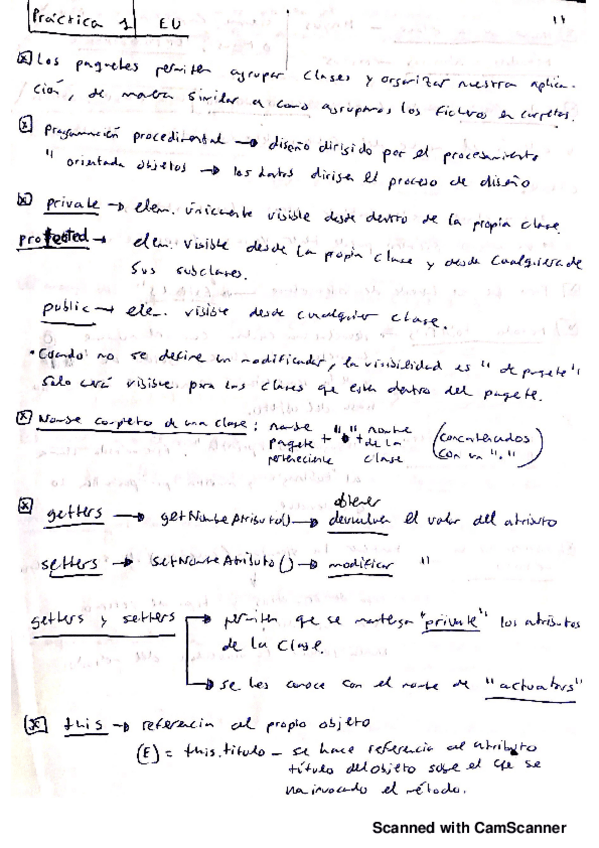 Práctica 1 EU
Los paquetes permiten agrupar clases y organizar nuestra aplica-
ción, de manera similar a como agrupamos los ficheros en carpetas.
Programación procedimental → diseño dirigido por el procesamiento
" orientada objetos → los datos dirigen el proceso de diseño
private → elem. únicamente visible desde dentro de la propia clase
protected → elem. visible desde la propia clase y desde cualquiera de
sus subclases.
public → elem. visible desde cualquier clase.
• Cuando no se define un modificador, la visibilidad es "de paquete"
solo será visible para las clases que estén dentro del paquete.
Nombre completo de una clase: nombre "." nombre (concatenados
paquete + • + de la con un ".")
perteneciente clase
obtener
getters → getNombreAtributo() → devuelven el valor del atributo
setters → setNombreAtributo() → modificar "
getters y setters → permiten que se mantenga "private" los atributos
de la clase.
→ se les conoce con el nombre de "actuators"
this → referencia al propio objeto
(E) = this.titulo - se hace referencia al atributo
título del objeto sobre el que se
ha invocado el método.
Scanned with CamScanner